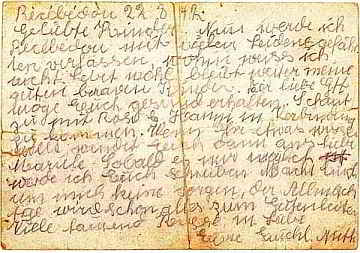 Récébédou 22. 8. 42.
Geliebte Kinder. Nun werde ich
Récébedou mit vielen Leidensgefähr
ten verlassen, wohin weiss ich
nicht. Lebt wohl, bleibt weiter meine
guten braven Kinder. Der liebe Gott
möge Euch gesund erhalten. Schaut
mit Rosa &
zu kommen. Wenn Ihr etwas wissen
wollt wendet Euch dann ans liebe
Mariele Sobald es mir möglich ist
werde ich Euch schreiben Macht Euch
um mich keine Sorgen, der Allmäch
tige wird schon alles zum Guten
Viele tausend Küsse in Liebe
Eure Mutter